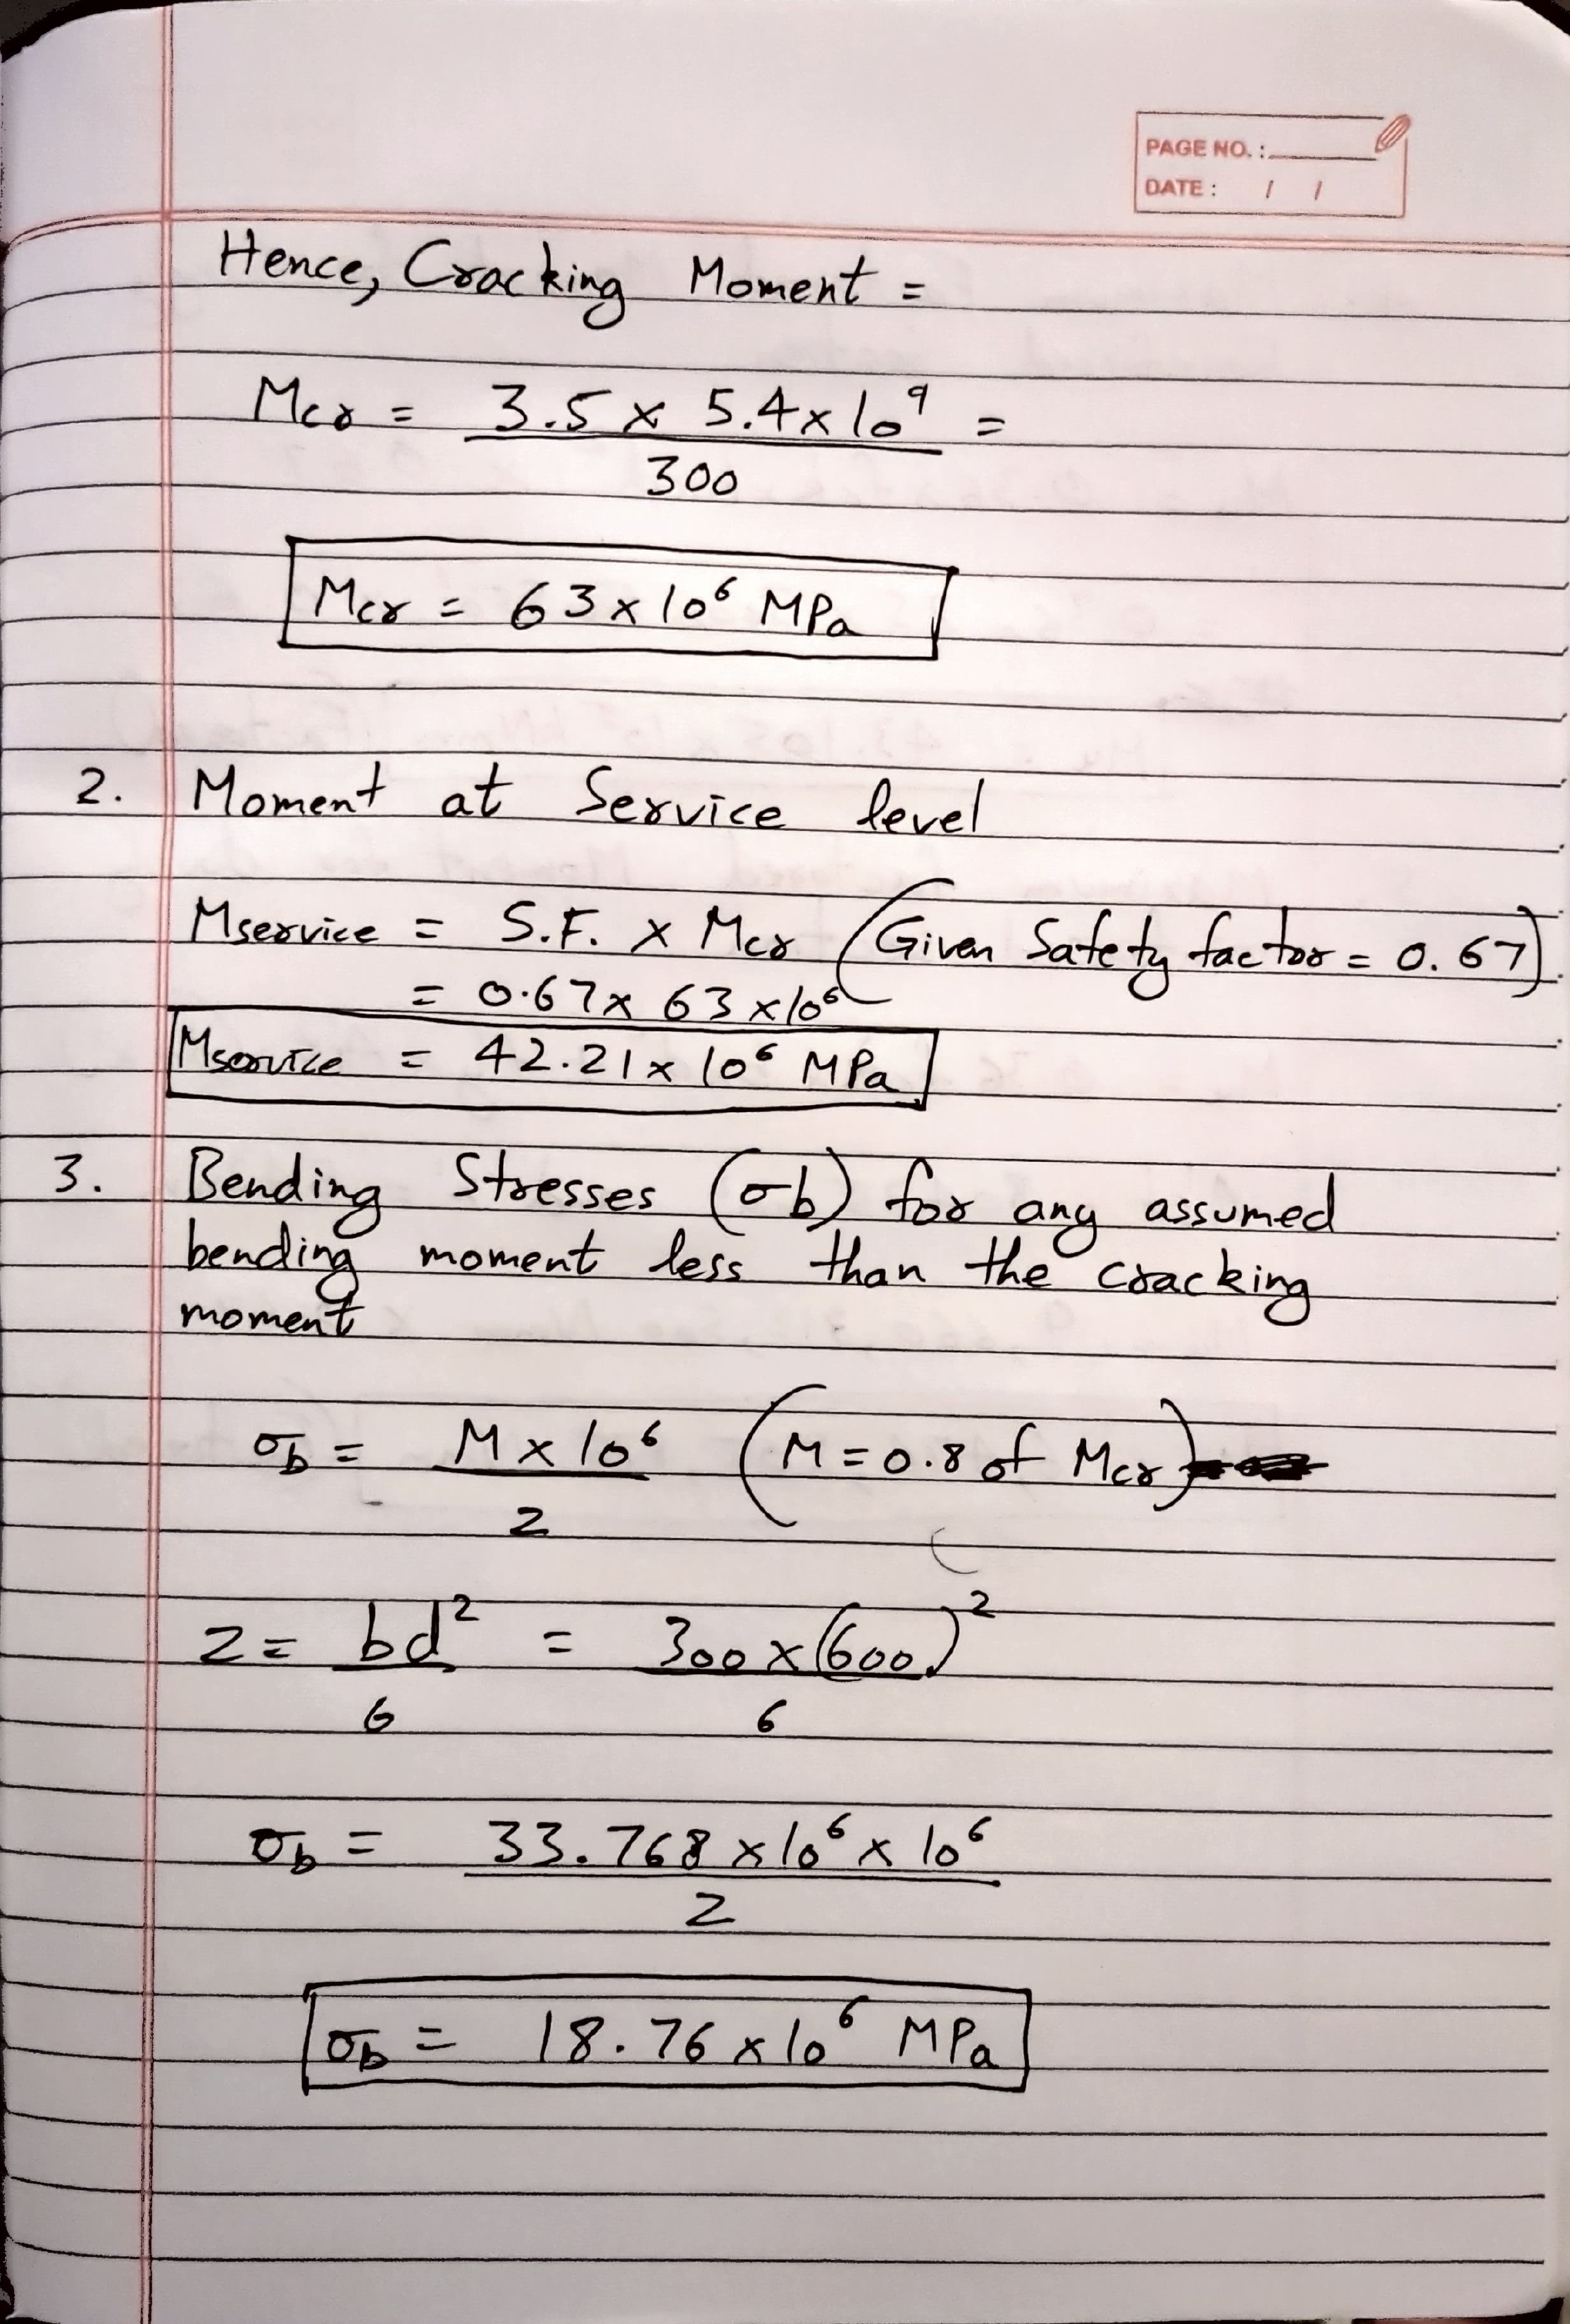 PAGE NO. :
DATE : / /
Hence, Cracking Moment =
Mcr = 3.5 x 5.4 x 10⁹ =
300
Mcr = 63 x 10⁶ MPa
2. Moment at Service level
Mservice = S.F. x Mcr (Given Safety factor = 0.67)
= 0.67 x 63 x 10⁶
Mservice = 42.21 x 10⁶ MPa
3. Bending Stresses (σb) for any assumed
bending moment less than the cracking
moment
σb = M x 10⁶ (M = 0.8 of Mcr)
Z
Z = bd² = 300 x (600)²
6 6
σb = 33.768 x 10⁶ x 10⁶
Z
σb = 18.76 x 10⁶ MPa